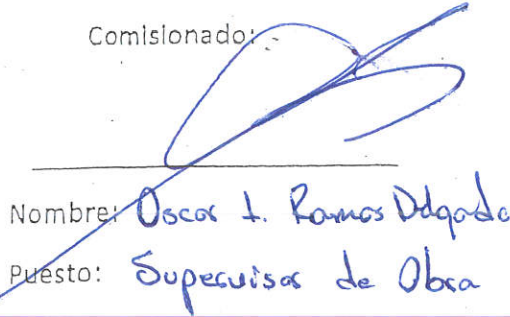 Comisionado:
Nombre: Oscar I. Ramos Delgado
Puesto: Supervisor de Obra